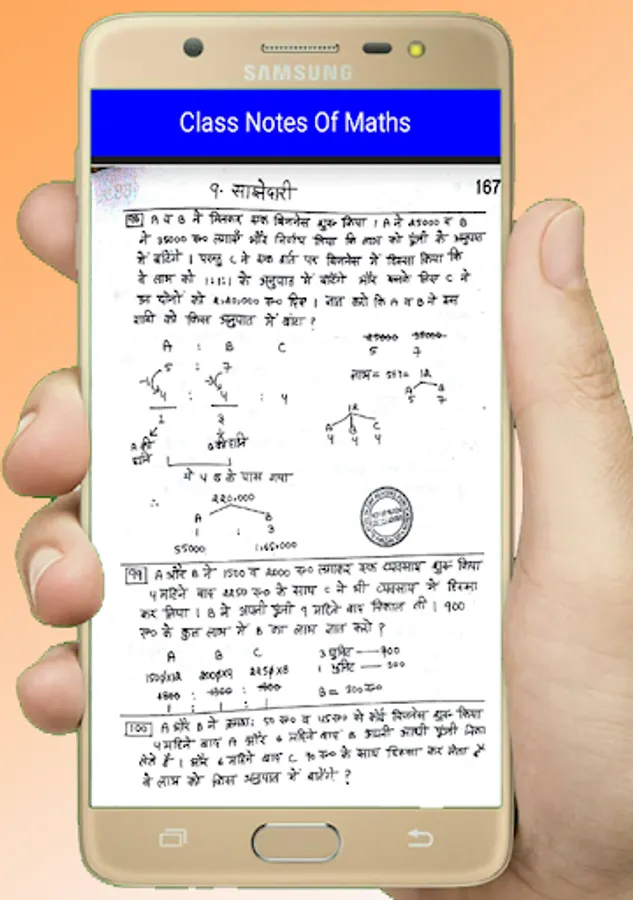 SAMSUNG
Class Notes Of Maths
९. साझेदारी 167
98 A व B ने मिलकर एक बिजनेस शुरू किया । A ने 25000 व B
ने 35000 रू० लगाएँ और निर्णय लिया कि लाभ को पूंजी के अनुपात
में बांटेंगे । परन्तु C ने इस शर्त पर बिजनेस में हिस्सा किया कि
वे लाभ को 1:1:1 के अनुपात में बांटेंगे और इसके लिए C ने
उन दोनों को 2,20,000 रू० दिए । ज्ञात करो कि A व B ने इस
राशी को किस अनुपात में बांटा ?
A : B C 25000 35000
5 : 7 5 7
लाभ = 5+7 = 12
A B
5 7
4 : 4 : 4
12
A B C
4 4 4
1 3
A की राशि B की राशि
ये 4 C के पास गया
∴ 220,000
A B
1 : 3
55000 1,65,000
99 A और B ने 1500 व 2000 रू० लगाकर एक व्यवसाय शुरू किया
4 महिने बाद 2250 रू० के साथ C ने भी व्यवसाय में हिस्सा
कर लिया । B ने अपनी पूंजी 9 महिने बाद निकाल ली । 900
रू० के कुल लाभ में B का लाभ ज्ञात करो ?
A B C 3 युनिट — 900
1500x12 2000x9 2250x8 1 युनिट — 300
1800 : 1800 : 1800
1 : 1 : 1 B = 300 रू०
100 A और B ने क्रमशः 50 रू० व 45 रू० से कोई बिजनेस शुरू किया
4 महिने बाद A और 6 महिने बाद B अपनी आधी पूंजी निका
लेते है । और 6 महिने बाद C 70 रू० के साथ हिस्सा कर लेता है
वे लाभ को किस अनुपात में बांटेंगे ?